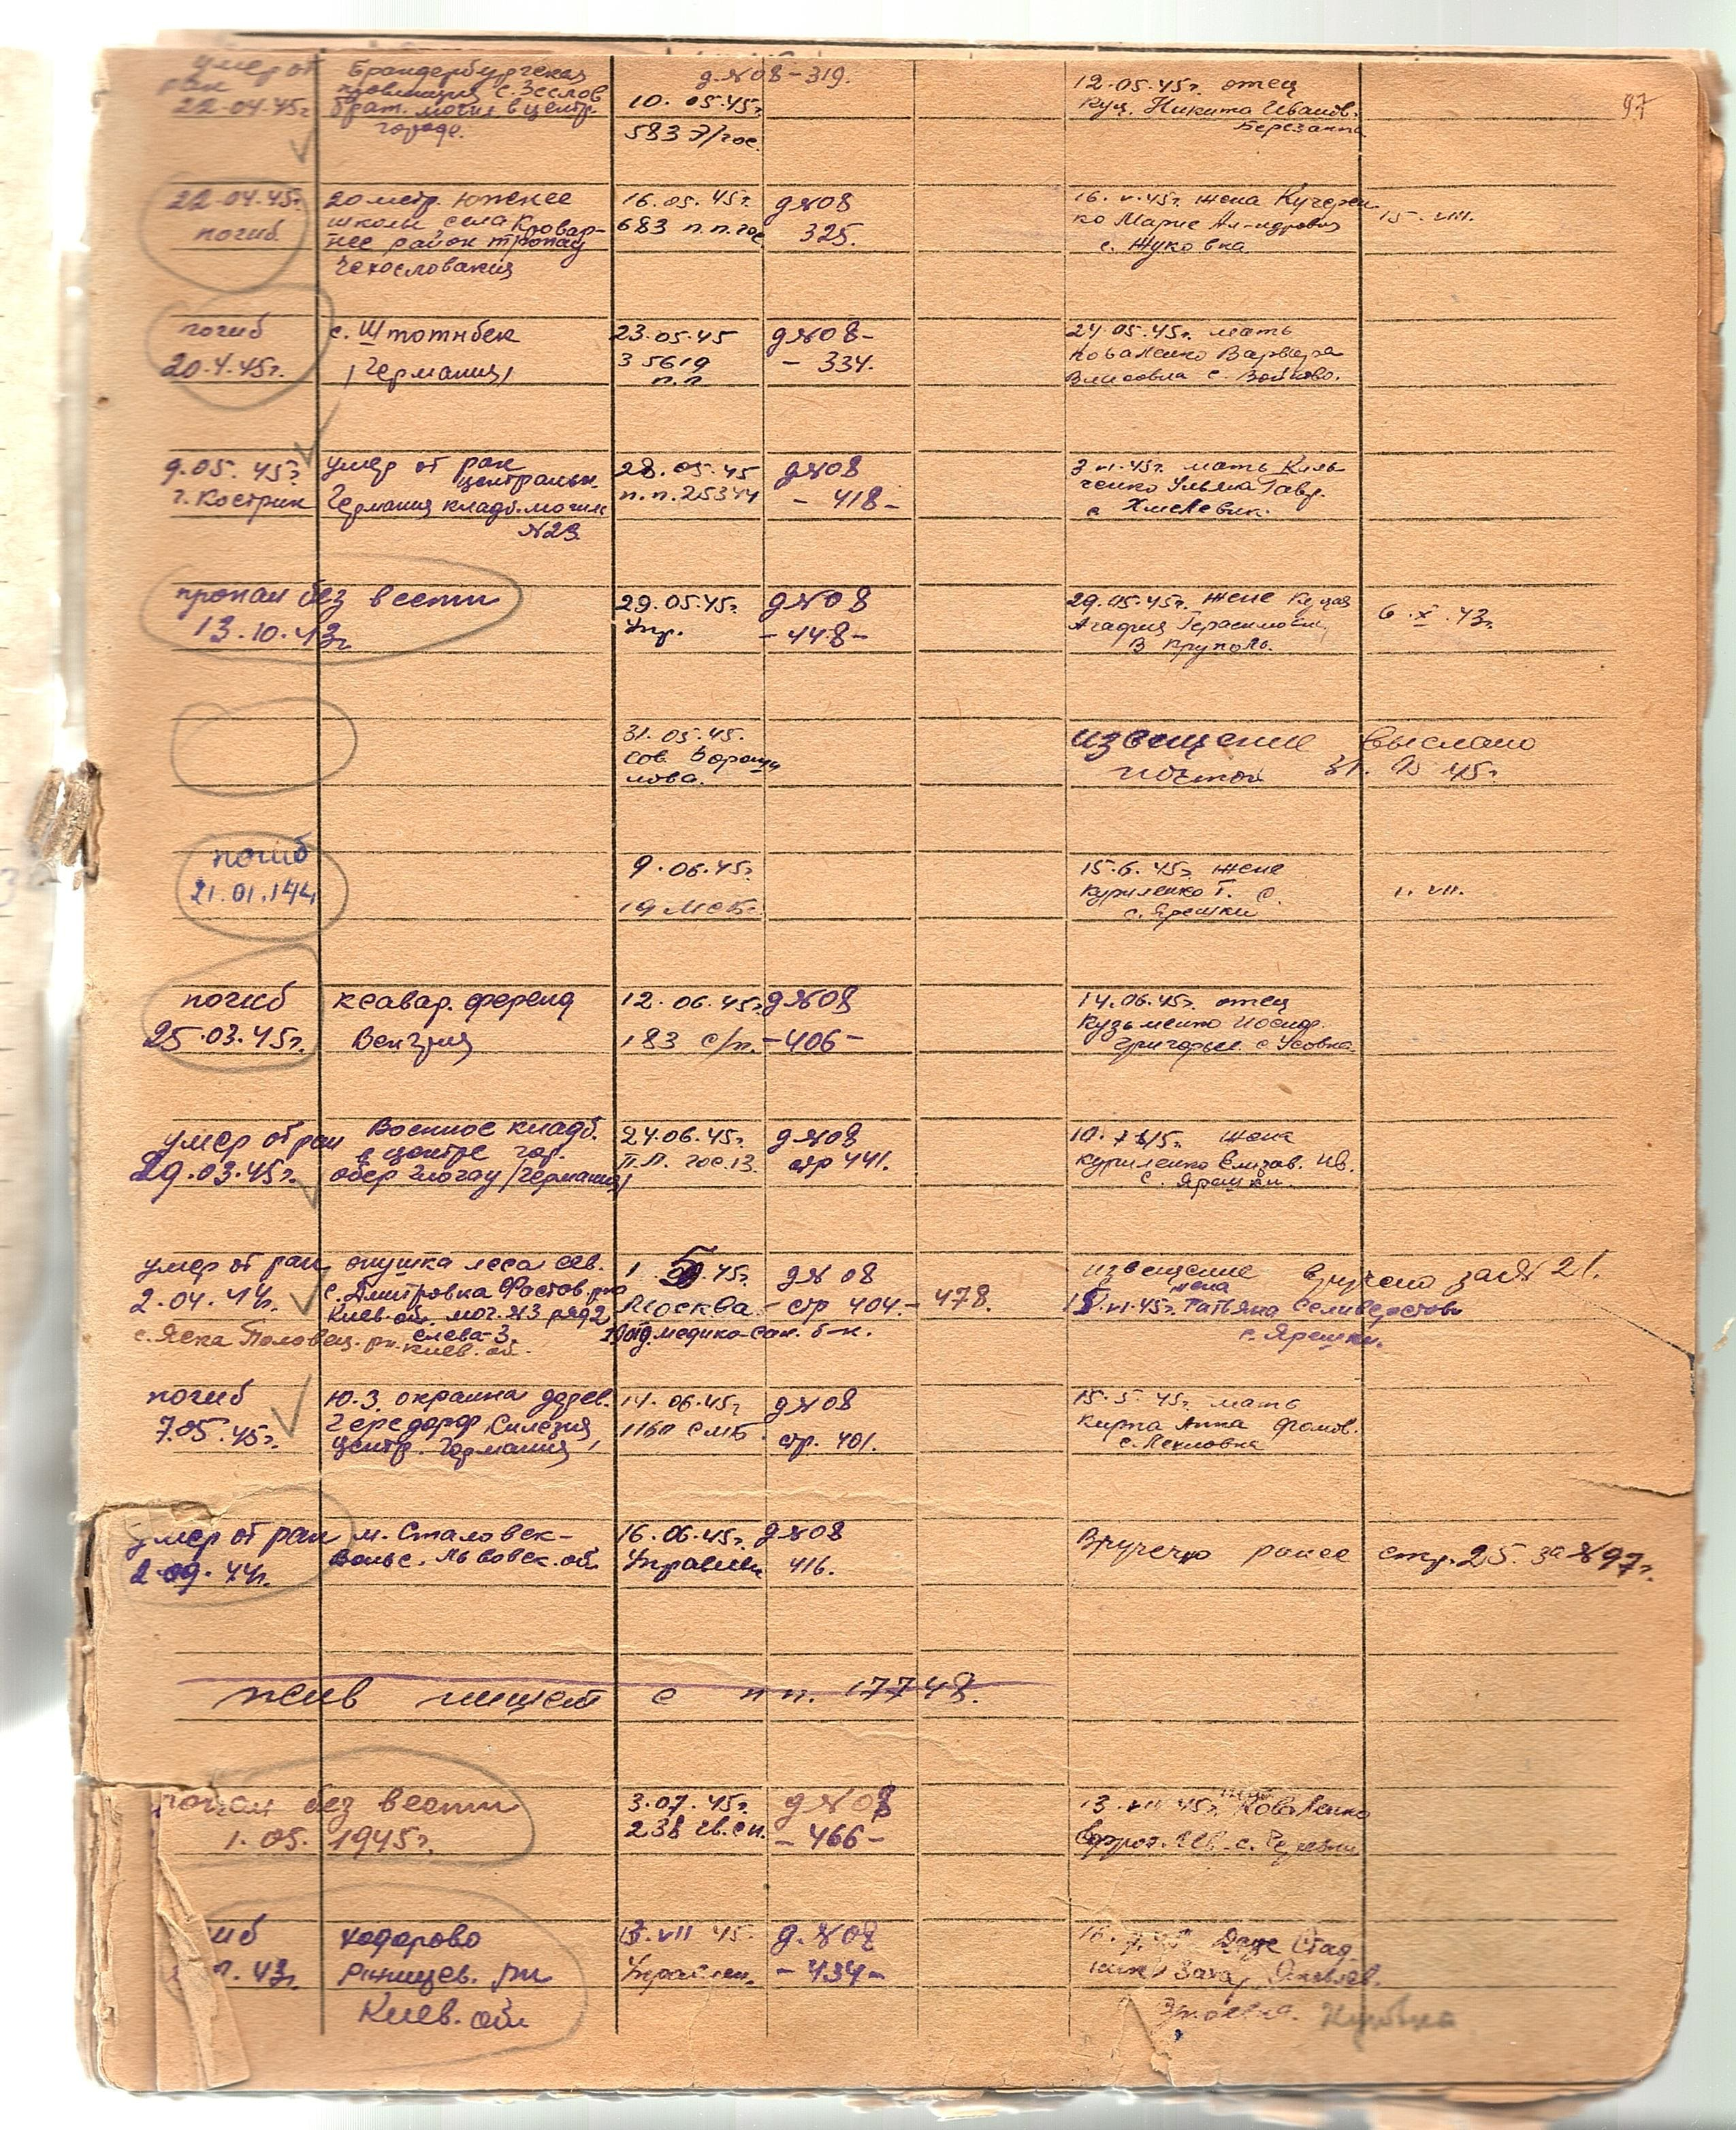 97
умер от
ран
22.04.45г.
Брандербургская
провинция с. Зеслов
брат. могил в центр.
городе.
д.№08-319.
10. 05.45г.
583 Э/гос.
12.05.45г. отец
Куц. Никита Иванов.
Березанка
22.04.45г.
погиб.
20 метр. южнее
школы, села Кровар-
нее район Тропау
Чехословакия
16.05.45г.
683 п.п.гос
д№08
325.
16.V.45г. жена Кучерен
ко Марие Ал-ндровна
с. Жуковка
15.VIII.
погиб
20.4.45г.
с. Штотнбек
/Германия/
23.05.45
35619
п.п
д№08-
- 334.
24.05.45г. мать
Коваленко Варвара
Власовна с. Войково.
9.05.45г
г. Кострин
умер от ран
центральн.
Германия кладб. могил
№23.
28.05.45
п.п.25344
д№08
- 418 -
3 VI.45г. мать Киль
ченко Ульяна Гавр.
с Хмелевик.
пропал без вести
13.10.43г.
29.05.45г.
Упр.
д№08
- 448 -
29.05.45г. жене Куцая
Агафия Герасимовн,
В Круполь.
6.X.43г.
31.05.45.
сов Вороши
лова.
извещение выслано
почтой 31. 45г.
погиб
21.01.144
9.06.45г
19 мсб
15.6.45г. жене
Куриленко Т. С.
с. Ярешки
1.VII.
погиб
25.03.45г.
кеавар. ференд
Венгрия
12.06.45г.
183 с/п.
д№08
- 406 -
14.06.45г. отец
Кузьменко Иосиф.
Григорьев. с Усовка.
умер от ран
29.03.45г.
Военное кладб.
в центре гор.
обер Глогау /Германия/
24.06.45г.
П.П. гос.13.
д№08
стр 441.
10.7.45г. жена
Куриленко Елизав. Ив.
с. Ярешки.
умер от ран
2.04.44г.
с. Яска Половец. рн. Киев. об.
опушка леса сев.
с. Дмитровка Фастов. рна
Киев. об. мог. №3 ряд 2
слева-3.
1 .45г.
Москва
отд. медико-сан. б-н.
д№08
- стр 404. -
478.
извещение вручено за №21.
жена
VI.45г. Татьяна Селиверстовн
с. Ярешки.
погиб
7.05.45г.
Ю.З. окраина дерев.
Гередорф Силезия
центр. Германия,
14.06.45г
1160 СМБ
д№08
стр. 401.
15.5.45г. мать
Кирпа Анна Фомов.
с. Лехновка
умер от ран
2.09.44г.
м. Сталовск-
Вольс. Львовск. об
16.06.45г.
Управлен
д№08
416.
Вручено ранее стр. 25. за №97г.
жив пишет с п п. 17748.
пропал без вести
1.05.1945г.
3.07.45г.
238 гв.сп.
д№08
- 466 -
13 VII 45г. Коваленко
иб
п.43г.
Ходорово
Ржищев. рн
Киев. об.
VII 45.
Управлен.
д.№08
- 434 -